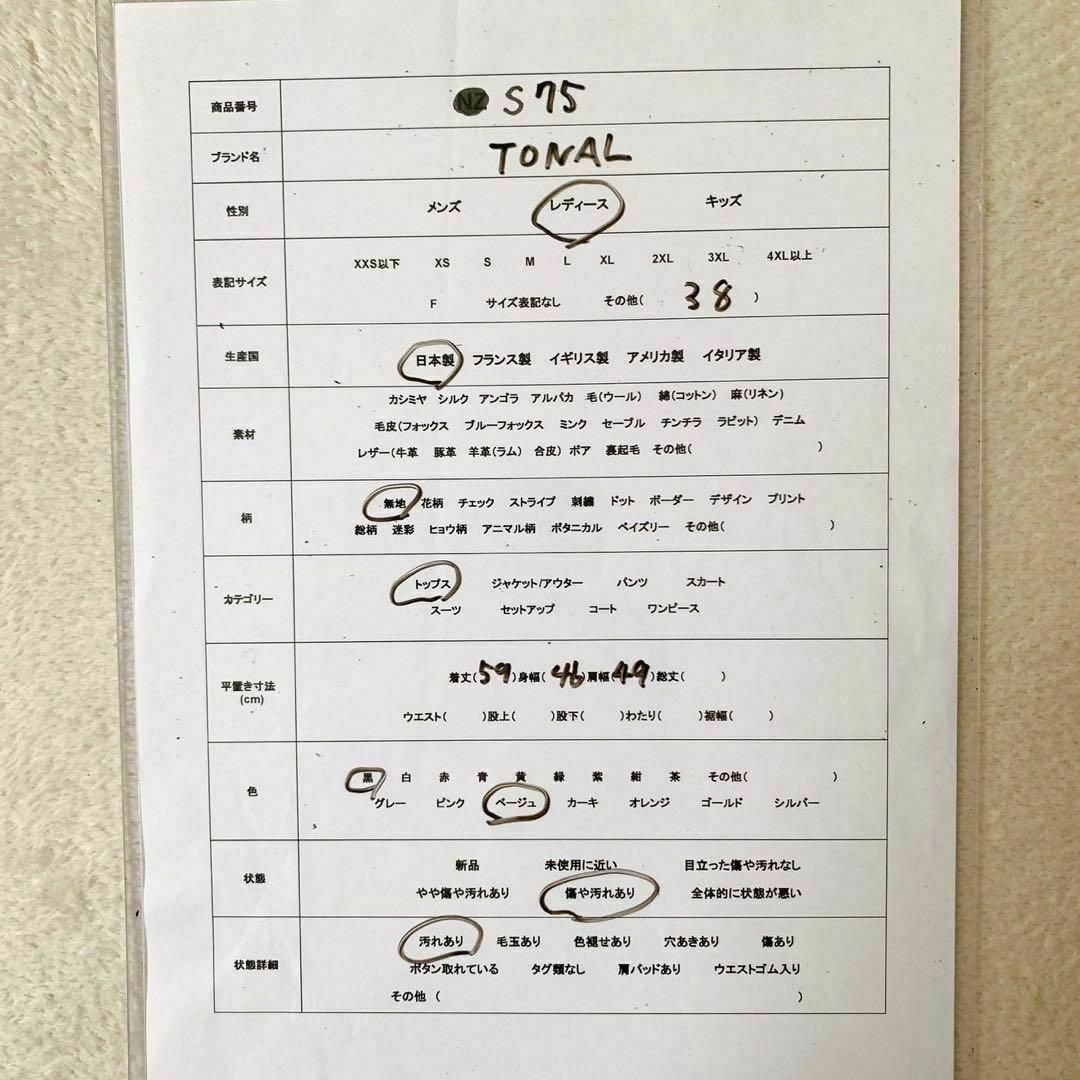 商品番号 NZ S75
ブランド名 TONAL
性別 メンズ レディース キッズ
表記サイズ XXS以下 XS S M L XL 2XL 3XL 4XL以上
F サイズ表記なし その他( 38 )
生産国 日本製 フランス製 イギリス製 アメリカ製 イタリア製
カシミヤ シルク アンゴラ アルパカ 毛(ウール) 綿(コットン) 麻(リネン)
素材 毛皮(フォックス ブルーフォックス ミンク セーブル チンチラ ラビット) デニム
レザー(牛革 豚革 羊革(ラム) 合皮) ボア 裏起毛 その他( )
柄 無地 花柄 チェック ストライプ 刺繍 ドット ボーダー デザイン プリント
総柄 迷彩 ヒョウ柄 アニマル柄 ボタニカル ペイズリー その他( )
カテゴリー トップス ジャケット/アウター パンツ スカート
スーツ セットアップ コート ワンピース
平置き寸法 着丈(59)身幅(46)肩幅(49)総丈( )
(cm) ウエスト( )股上( )股下( )わたり( )裾幅( )
色 黒 白 赤 青 黄 緑 紫 紺 茶 その他( )
グレー ピンク ベージュ カーキ オレンジ ゴールド シルバー
状態 新品 未使用に近い 目立った傷や汚れなし
やや傷や汚れあり 傷や汚れあり 全体的に状態が悪い
状態詳細 汚れあり 毛玉あり 色褪せあり 穴あきあり 傷あり
ボタン取れている タグ類なし 肩パッドあり ウエストゴム入り
その他 ( )